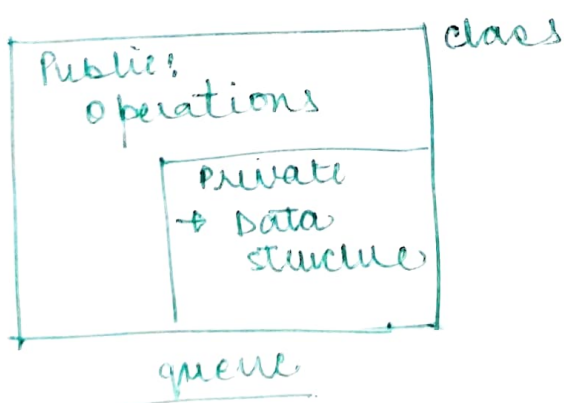 class
Public:
operations
Private
→ Data
structure
queue